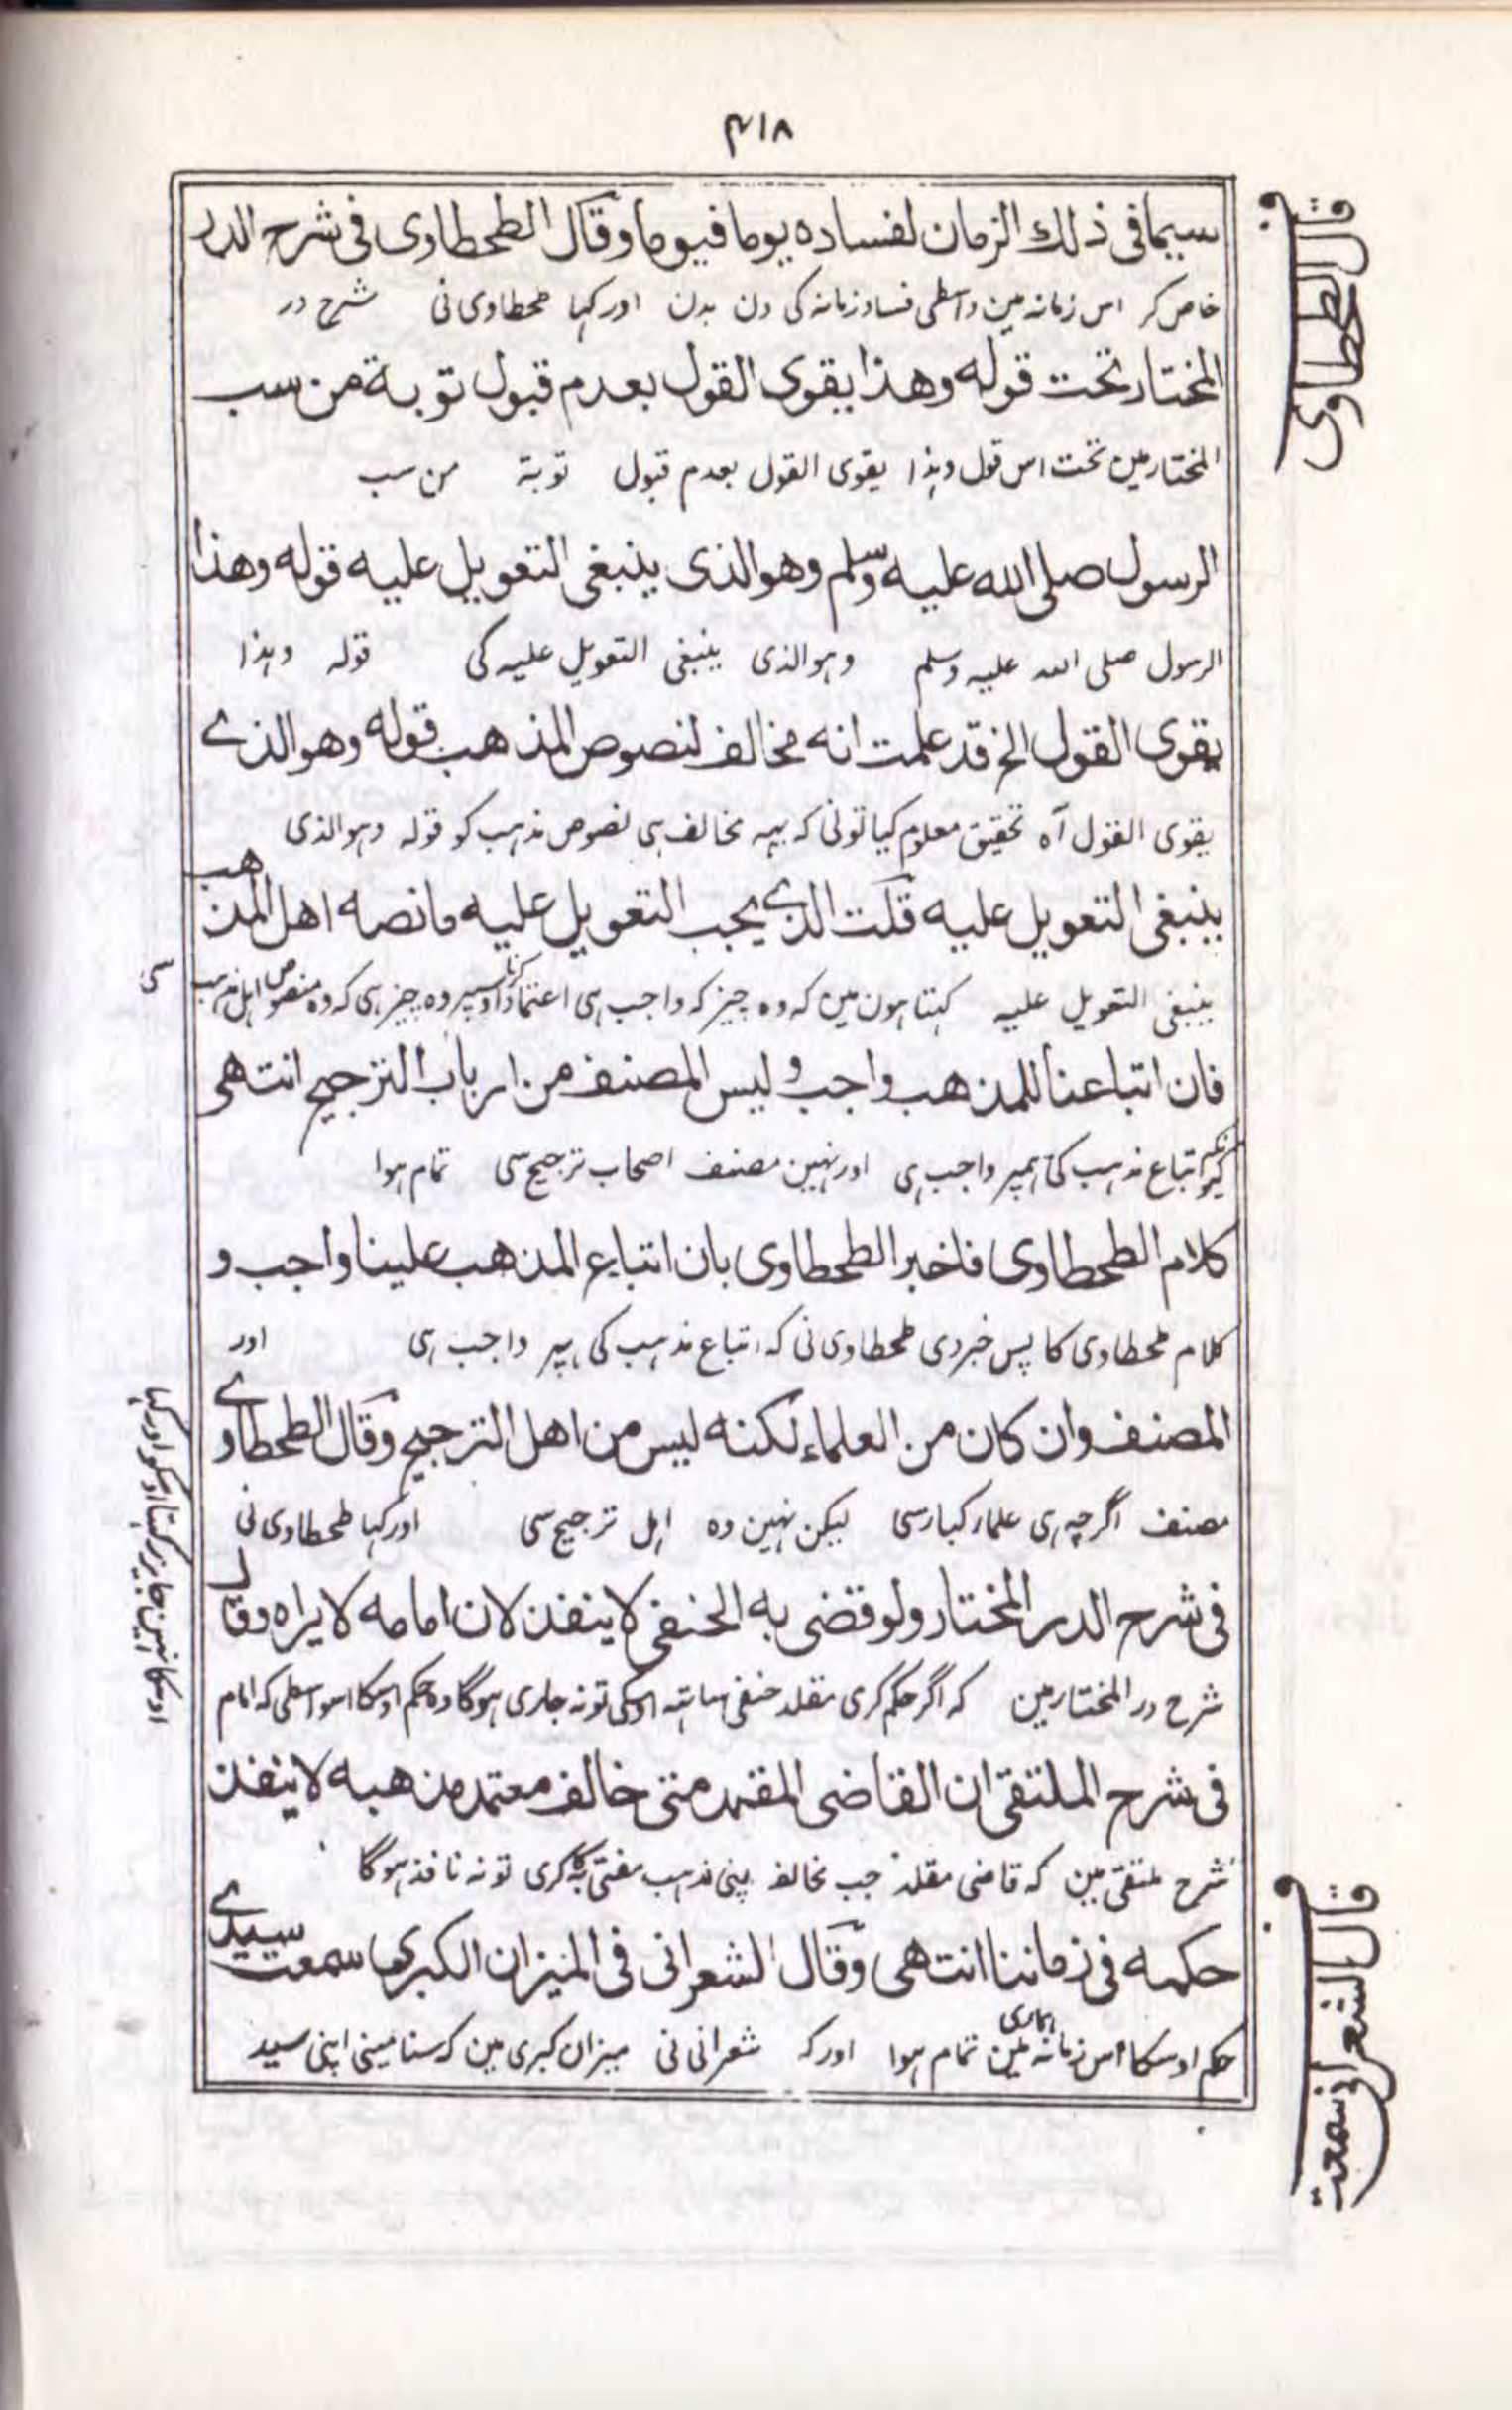 ۴۱۸
سیما فی ذلك الزمان لفساده یوما فیوما وقال الطحطاوی فی شرح الدر
خاص کر اس زمانہ مین واسطی فساد زمانہ کی دن بدن اور کہا طحطاوی نی شرح در
المختار تحت قوله وهذا یقوی القول بعدم قبول توبة من سب
المختار مین تحت اس قول وہذا یقوی القول بعدم قبول توبة من سب
الرسول صلی الله علیه وسلم وهو الذی ینبغی التعویل علیه قوله وهذا
الرسول صلی اللہ علیہ وسلم وہو الذی ینبغی التعویل علیہ کی قولہ وہذا
یقوی القول الخ قد علمت انه مخالف لنصوص المذهب قوله وهو الذے
یقوی القول آہ تحقیق معلوم کیا تونی کہ یہہ مخالف ہی نصوص مذہب کو قولہ وہو الذی
ینبغی التعویل علیه قلت الذے یجب التعویل علیه ما نصه اهل المذهب
ینبغی التعویل علیہ کہتا ہون مین کہ وہ چیز کہ واجب ہی اعتماد کرنا اوسپر وہ چیز ہی کہ وہ منصوص اہل مذہب کی
فان اتباعنا للمذهب واجب و لیس المصنف من ارباب الترجیح انتهی
کیونکہ اتباع مذہب کی ہمپر واجب ہی اور نہین مصنف اصحاب ترجیح سی تمام ہوا
کلام الطحطاوی فاخبر الطحطاوی بان اتباع المذهب علینا واجب و
کلام طحطاوی کا پس خبر دی طحطاوی نی کہ اتباع مذہب کی ہمپر واجب ہی اور
المصنف وان کان من العلماء لکنه لیس من اهل الترجیح وقال الطحطاوے
مصنف اگرچہ ہی علمار کبار سی لیکن نہین وہ اہل ترجیح سی اور کہا طحطاوی نی
فی شرح الدر المختار ولو قضی به الحنفی لا ینفذ لان امامه لا یراه وقال
شرح در المختار مین کہ اگر حکم کری مقلد حنفی ساتہہ اوسکی تو نہ جاری ہوگا وہ حکم اوسکا اسواسطی کہ امام
اوسکا نہین جایز رکہتا اوسکو اور کہا
فی شرح الملتقی ان القاضی المقلد متی خالف معتمد مذهبه لا ینفذ
شرح ملتقی مین کہ قاضی مقلد جب مخالف اپنی مذہب مفتی بہ کا کری تو نہ نافذ ہوگا
حکمه فی زماننا انتهی وقال الشعرانی فی المیزان الکبری سمعت سیدے
حکم اوسکا اس زمانہ ہماری مین تمام ہوا اور کہ شعرانی نی میزان کبری مین کہ سنا مینی اپنی سید
قال الطحطاوی
قال الشعرانی سمعت